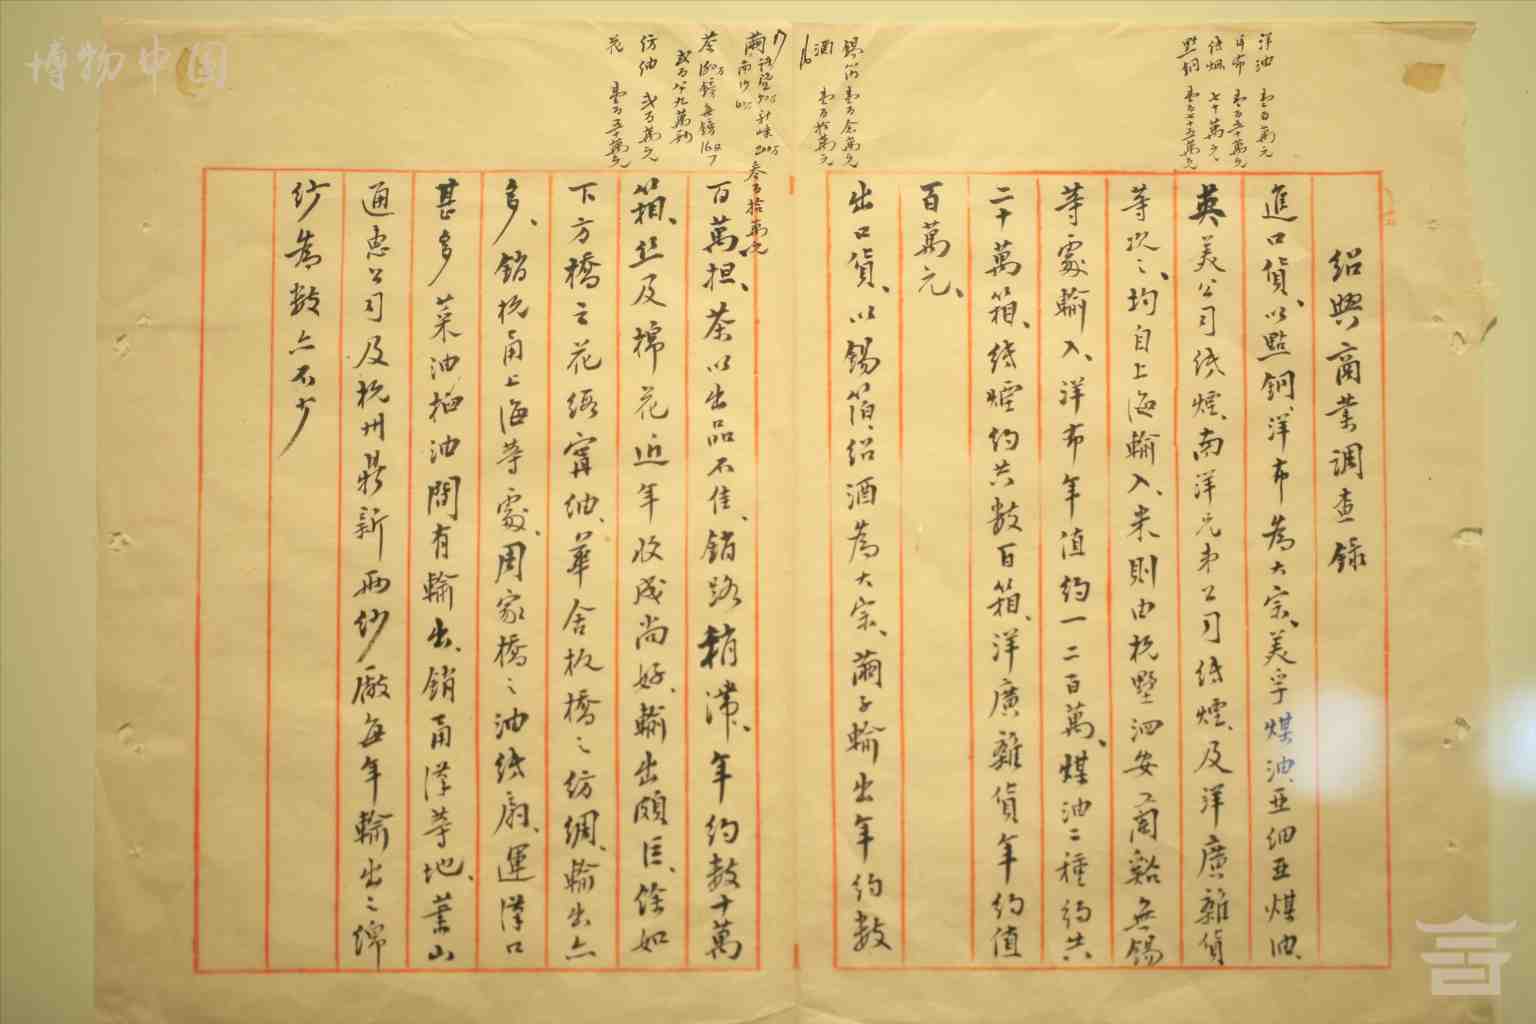 博物中国
洋油 壹百萬元
洋布 壹百五十萬元
紙烟 七十萬元
點銅 壹百七十五萬元
錫箔 壹百余萬元
酒 壹百拾萬元
茶
紡紬 弍百萬元
花 壹百五十萬元
紹興商業調查錄
進口貨、以點銅、洋布為大宗、美孚煤油、亞細亞煤油、
英美公司紙煙、南洋兄弟公司紙煙、及洋廣雜貨
等次之、均自上海輸入、米則由杭墅泗安、蘭谿無錫
等處輸入、洋布年值約一二百萬、煤油二種約共
二十萬箱、紙煙約共數百箱、洋廣雜貨年約值
百萬元、
出口貨、以錫箔、紹酒為大宗、繭子輸出年約數
百萬担、茶以出品不佳、銷路稍滯、年約數十萬
箱、丝及棉花近年收成尚好、輸出頗巨、餘如
下方橋之花綫甯紬、華舍板橋之紡綢、輸出亦
多、銷杭甬上海等處、周家橋之油紙扇、運漢口
甚多、菜油桕油間有輸出、銷甬漢等地、蕭山
通惠公司及杭州鼎新兩紗廠每年輸出之綿
紗為數亦不少